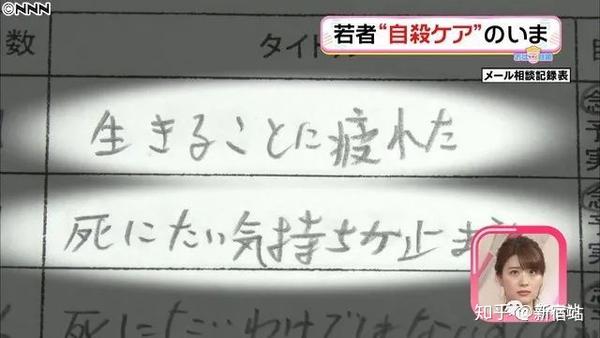 NNN
若者“自殺ケア”のいま
メール相談記録表
数
タイト
生きることに疲れた
死にたい気持ちが止ま
死にたいわけではない
念
予
実
念
知乎 @新宿站